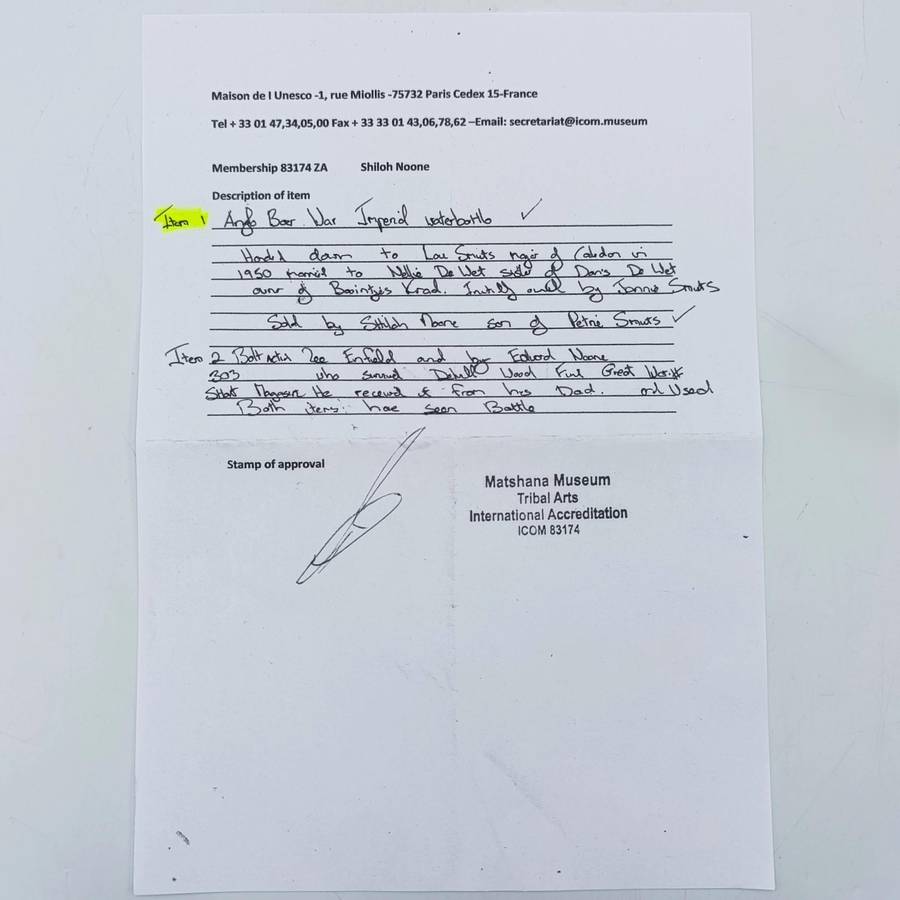 Maison de l Unesco -1, rue Miollis -75732 Paris Cedex 15-France
Tel + 33 01 47,34,05,00 Fax + 33 33 01 43,06,78,62 –Email: secretariat@icom.museum
Membership 83174 ZA Shiloh Noone
Description of item
Item 1 Anglo Boer War Imperial waterbottle
Handed down to Lou Smuts of Caledon in
1950 married to Nellie De Wet sister of De Wet
owner of Kraal. owned by Jannie Smuts
Sold by Shiloh Noone son of Petrie Smuts
Item 2 Bolt Action Lee Enfield and by Edward Noone
303 who survived Delville Wood First Great World
Short Magazine He received it from his Dad. and Used
Both items have seen Battle
Stamp of approval
Matshana Museum
Tribal Arts
International Accreditation
ICOM 83174